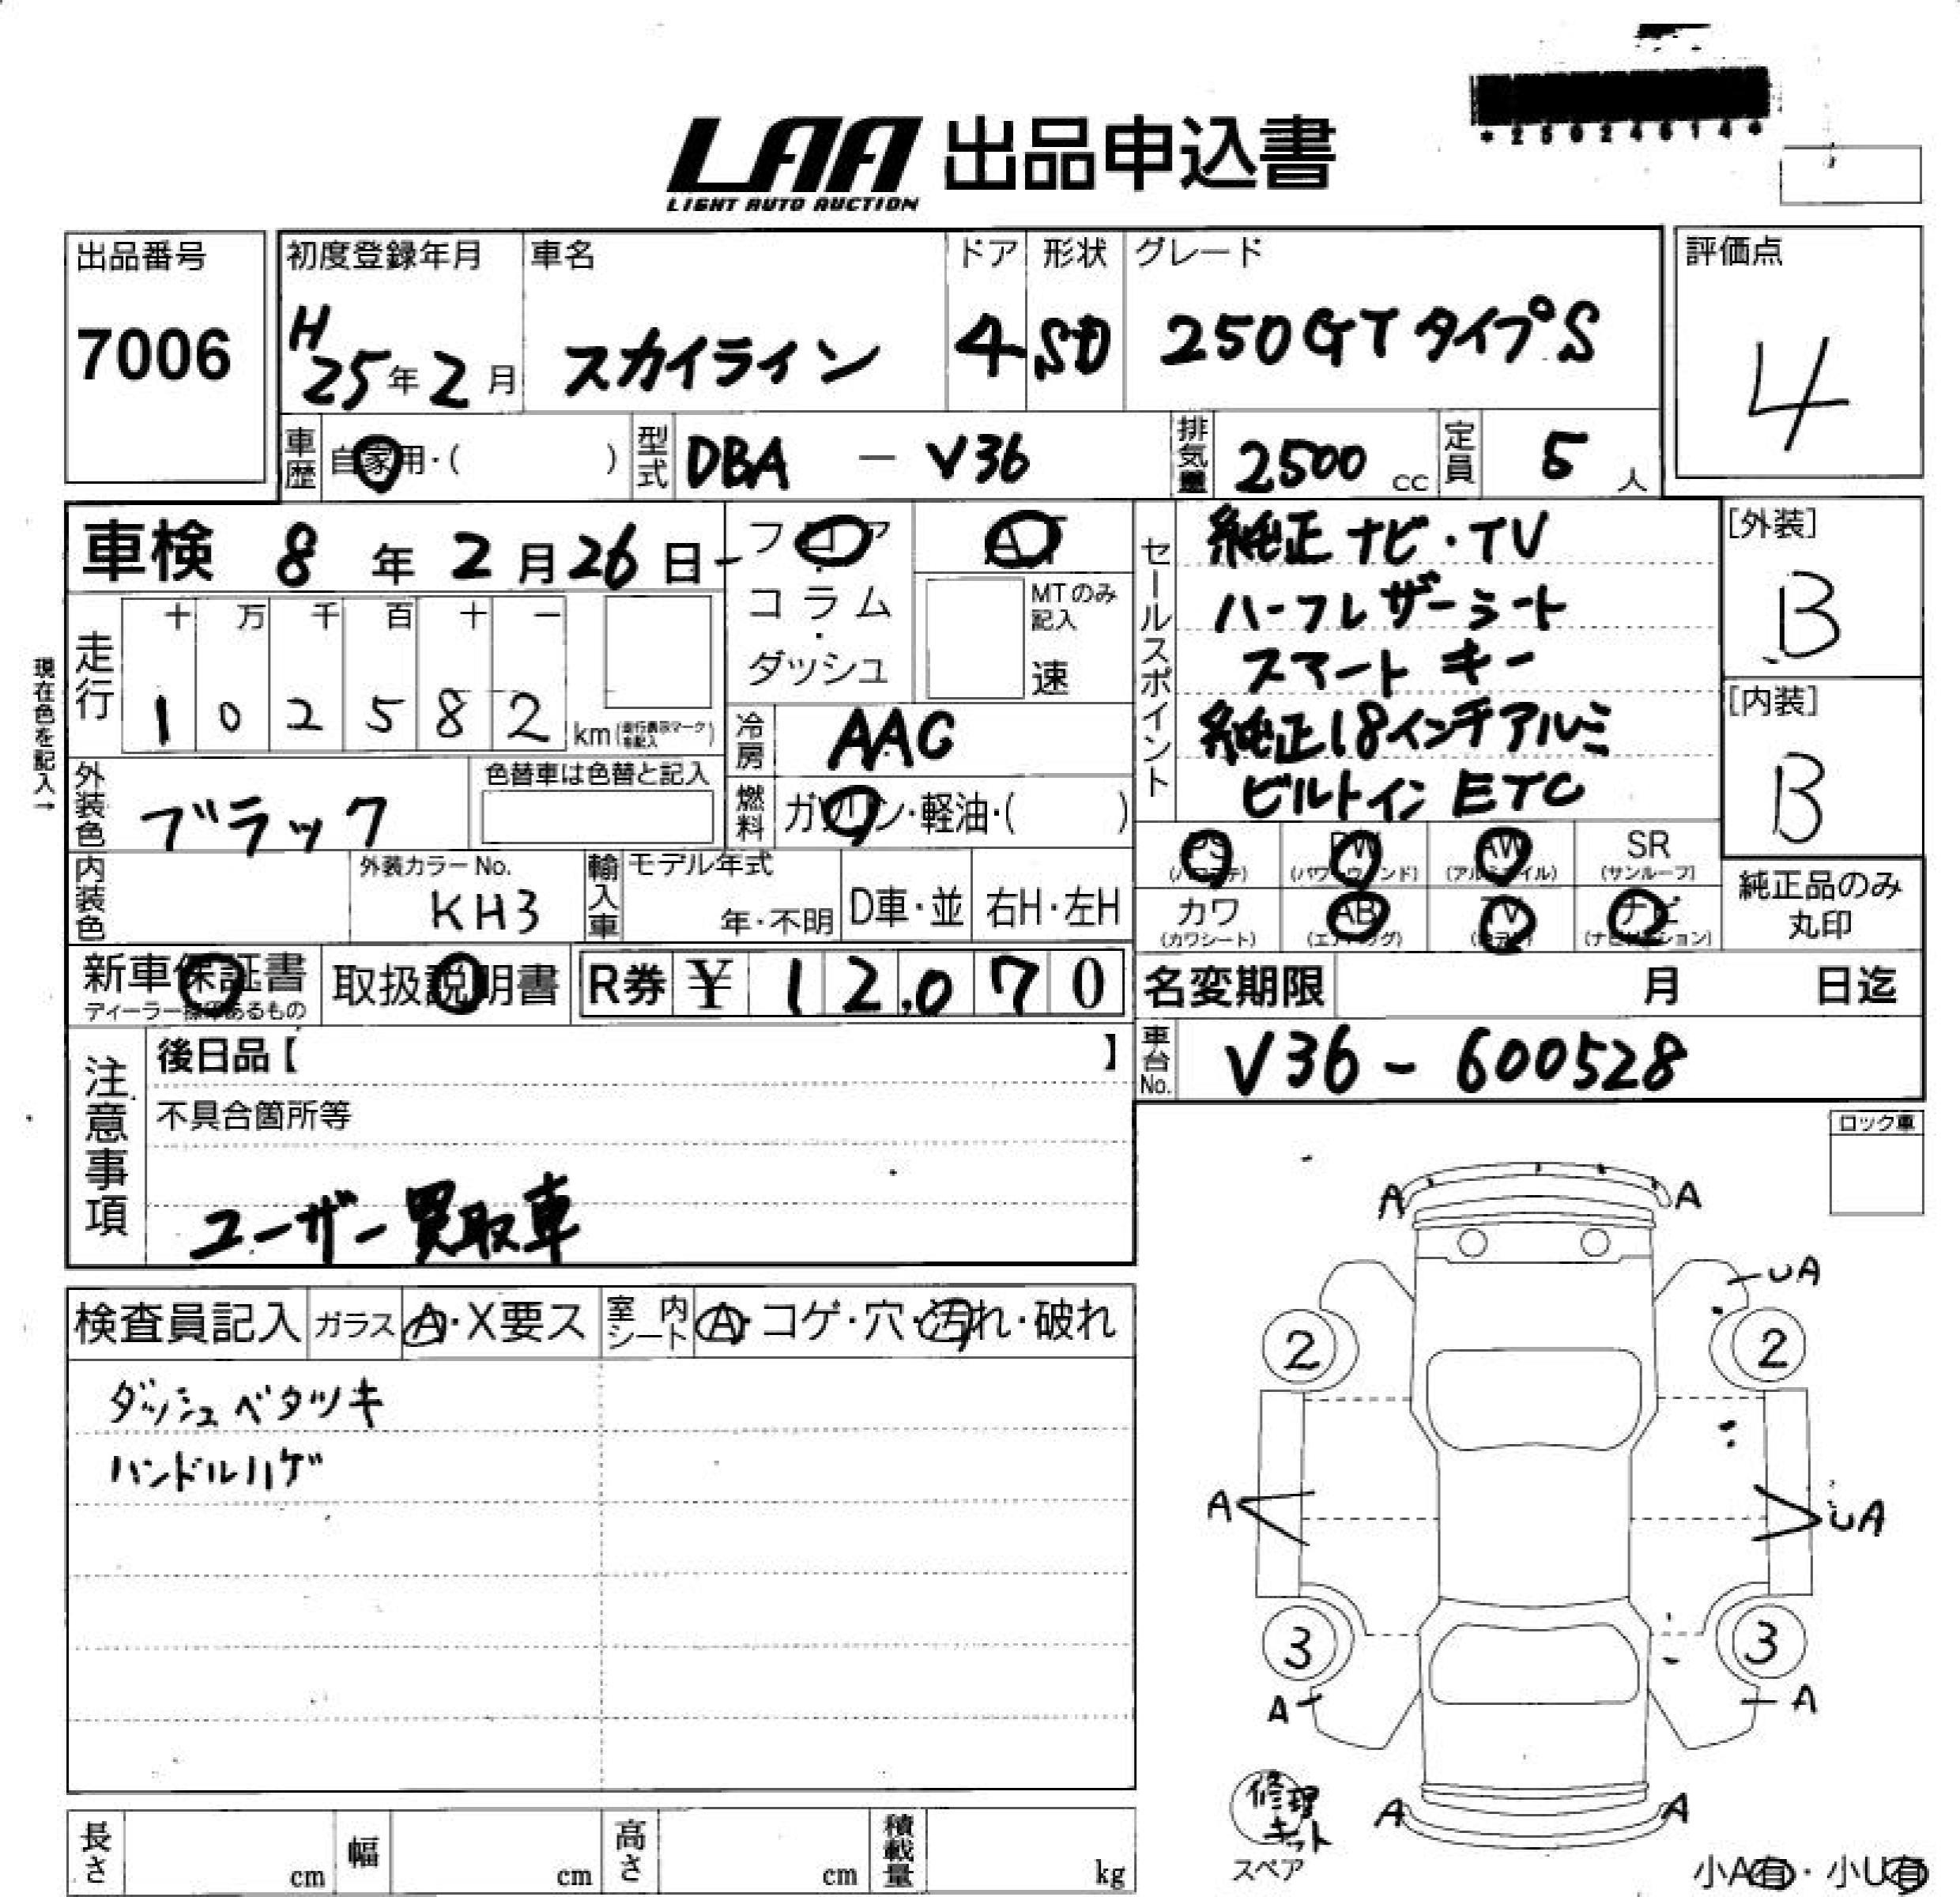 LAA 出品申込書
LIGHT AUTO AUCTION
出品番号
7006
初度登録年月
H25年2月
車名
スカイライン
ドア
4
形状
SD
グレード
250GTタイプS
評価点
4
車歴 自家用・( )
型式 DBA - V36
排気量 2500 cc
定員 5 人
車検 8年2月26日
フロア
コラム
・
ダッシュ
AT
MTのみ記入
速
セールスポイント
純正ナビ・TV
ハーフレザーシート
スマートキー
純正18インチアルミ
ビルトインETC
[外装]
B
[内装]
B
現在色を記入→
走行
十 万 千 百 十 一
1 0 2 5 8 2 km
冷房 AAC
外装色 ブラック
色替車は色替と記入
燃料 ガソリン・軽油・( )
内装色
外装カラーNo.
KH3
輸入車
モデル年式
年・不明
D車・並
右H・左H
PS
(パワステ)
PW
(パワーウィンド)
AW
(アルミホイル)
SR
(サンルーフ)
カワ
(カワシート)
AB
(エアバッグ)
TV
ナビ
(ナビゲーション)
純正品のみ
丸印
新車保証書
取扱説明書
R券 ¥ 12,070
名変期限 月 日迄
車台No. V36 - 600528
注意事項
後日品【 】
不具合箇所等
ユーザー買取車
ロック車
検査員記入
ガラス A・X要ス
室内シート A・コゲ・穴・汚れ・破れ
ダッシュベタツキ
ハンドルハゲ
A A
UA
2 2
A UA
3 3
A A
A A
修理キット
スペア
小A有・小U有
長さ cm
幅 cm
高さ cm
積載量 kg